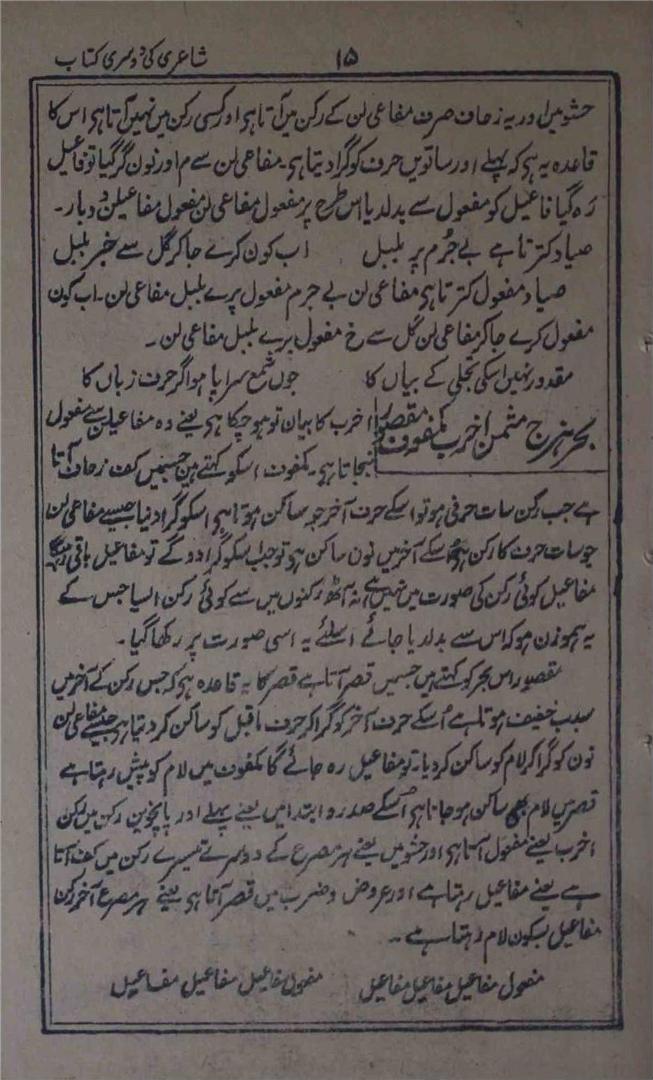 شاعری کی دوسری کتاب
۱۵
حشو میں اور یہ زحاف صرف مفاعی لن کے رکن میں آتا ہی اور کسی رکن میں نہیں آتا ہی اس کا
قاعدہ یہ ہی کہ پہلے اور ساتویں حرف کو گرا دیتا ہی۔ مفاعی لن سے م اور نون گر گیا تو فاعیل
رہ گیا فاعیل کو مفعول سے بدلدیا اس طرح پر مفعول مفاعی لن مفعول مفاعیلن دو بار۔
صیاد کترتا ہے بے جُرم پر بلبل اب کون کرے جاکر گل سے خبر بلبل
صیاد مفعول کترتا ہی مفاعی لن بے جرم مفعول پرے بلبل مفاعی لن۔ اب کون
مفعول کرے جاکر مفاعی لن گل سے خ مفعول برے بلبل مفاعی لن۔
مقدور نہیں اسکی تجلی کے بیاں کا جوں شمع سراپا ہو اگر حرف زباں کا
بحر ہزج مثمن اخرب مکفوف مقصور
اخرب کا بیان تو ہو چکا ہی یعنے وہ مفاعیلن سے مفعول
بنجاتا ہی۔ مکفوف اسکو کہتے ہیں جسمیں کف زحاف آتا
ہے جب رکن سات حرفی ہو تو اسکے حرف آخر جو ساکن ہوتا ہی اسکو گرا دینا جیسے مفاعی لن
جو سات حرف کا رکن ہی اسکے آخر میں نون ساکن ہو تو جب اسکو گرا دو گے تو مفاعیل باقی رہیگا
مفاعیل کوئی رکن کی صورت میں نہیں ہے نہ آٹھ رکنوں میں سے کوئی رکن ایسا جس کے
یہ ہموزن ہو کہ اس سے بدلدیا جائے اسلئے یہ اسی صورت پر رکھا گیا۔
مقصور اس بحر کو کہتے ہیں جسمیں قصر آتا ہے قصر کا یہ قاعدہ ہی کہ جس رکن کے آخر میں
سبب خفیف ہوتا ہے اُسکے حرف آخر کو گرا کر حرف ماقبل کو ساکن کر دیتا ہی جیسے مفاعی لن
نون کو گرا کر لام کو ساکن کر دیا۔ تو مفاعیل رہ جائے گا مکفوف میں لام کو پیش رہتا ہے
قصر میں لام بھی ساکن ہو جاتا ہی اسکے صدر و ابتدا میں یعنے پہلے اور پانچویں رکن میں لکن
اخرب یعنے مفعول آتا ہی اور حشو میں یعنے ہر مصرع کے دوسرے تیسرے رکن میں کف آتا
ہے یعنے مفاعیل رہتا ہے اور عروض و ضرب میں قصر آتا ہی یعنے ہر مصرع آخر رکن
مفاعیل بسکون لام رہتا ہے۔
مفعول مفاعیل مفاعیل مفاعیل مفعول مفاعیل مفاعیل مفاعیل